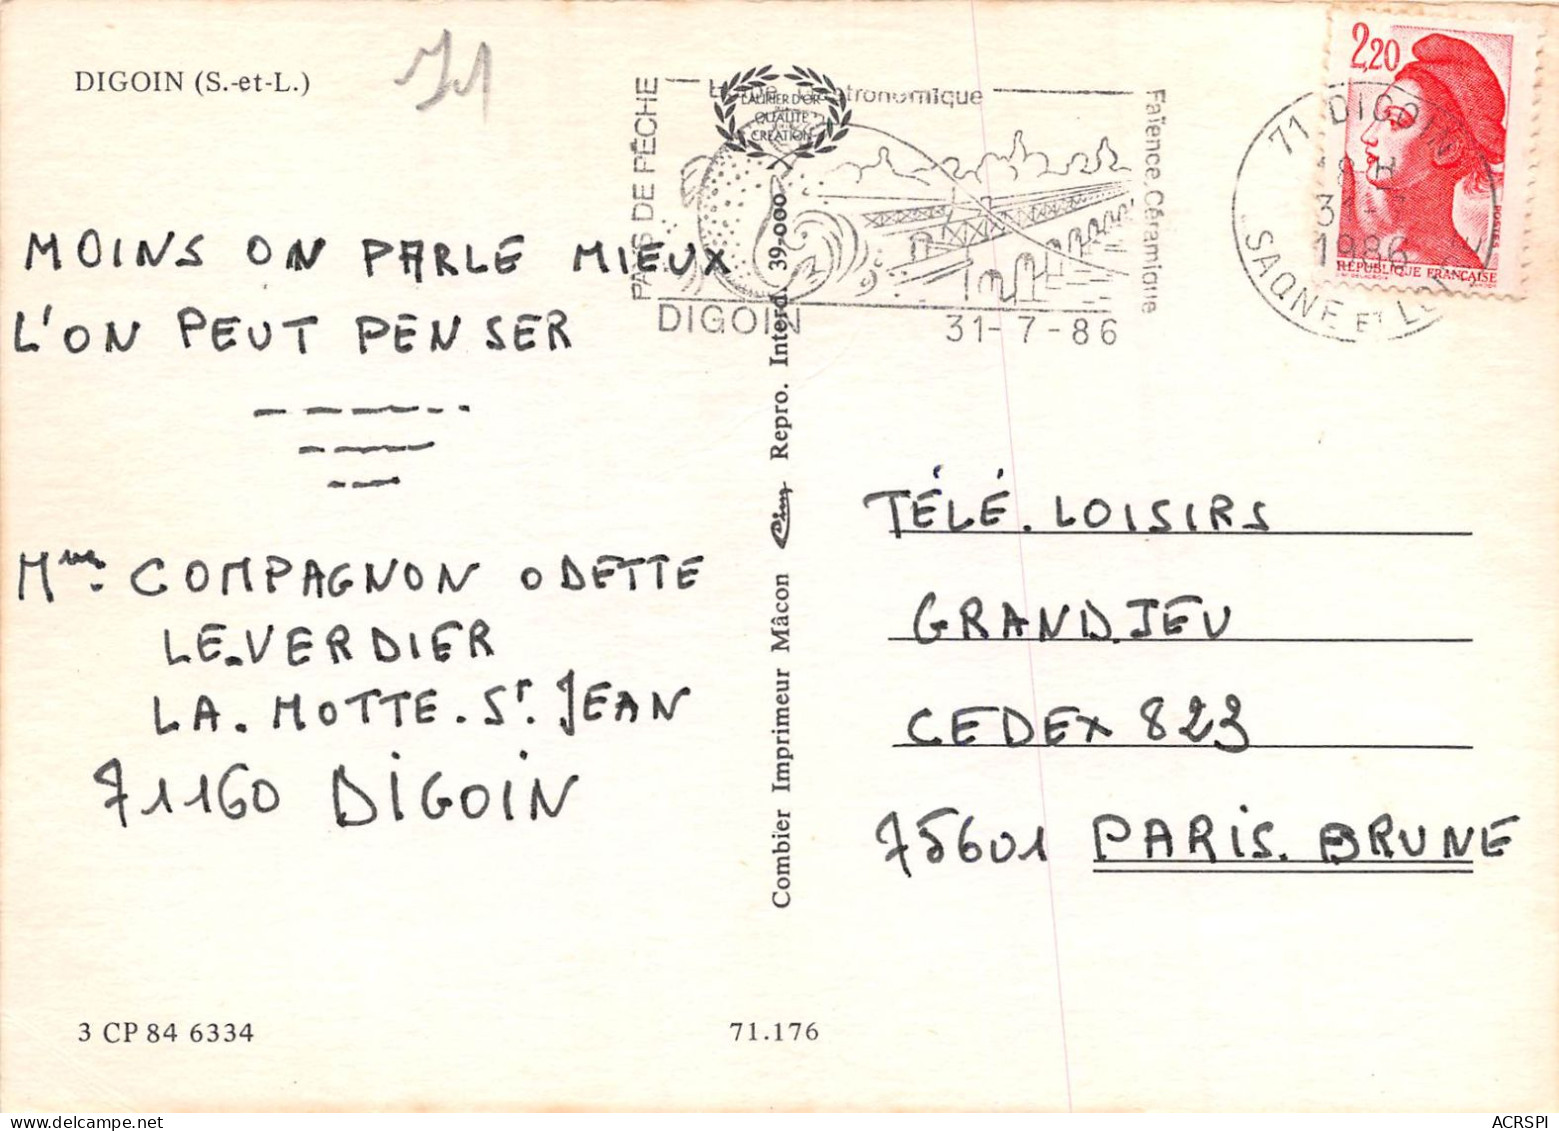 DIGOIN (S.-et-L.)
71
MOINS ON PARLE MIEUX
L'ON PEUT PENSER
Mme. COMPAGNON ODETTE
LE.VERDIER
LA.MOTTE.St.JEAN
71160 DIGOIN
3 CP 84 6334
PAYS DE PÊCHE
LAURIER D'OR
QUALITÉ
CRÉATION
Faïence, Céramique
DIGOIN
31-7-86
Combier Imprimeur Mâcon Cim Repro. Interd. 39-000
71.176
2,20
RÉPUBLIQUE FRANÇAISE
71 DIGOIN
18 H
1986
SAONE ET LOIRE
TÉLÉ.LOISIRS
GRAND.JEU
CEDEX 823
75601 PARIS.BRUNE
ACRSPI